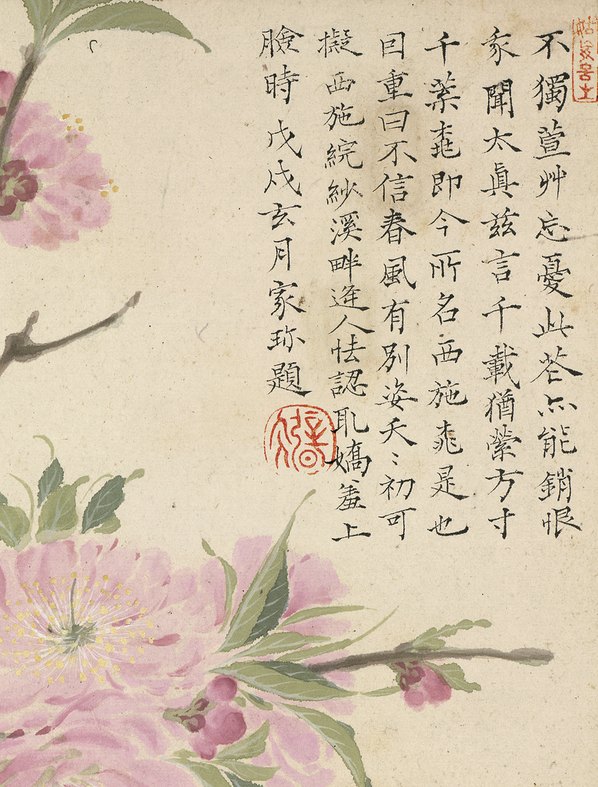 不獨萱艸忘憂此花亦能銷恨
我聞太真茲言千載猶縈方寸
千葉桃即今所名西施桃是也
因重曰不信春風有別姿夭〻初可
擬西施綄紗溪畔逢人怯認取嬌羞上
臉時戊戌玄月家珍題